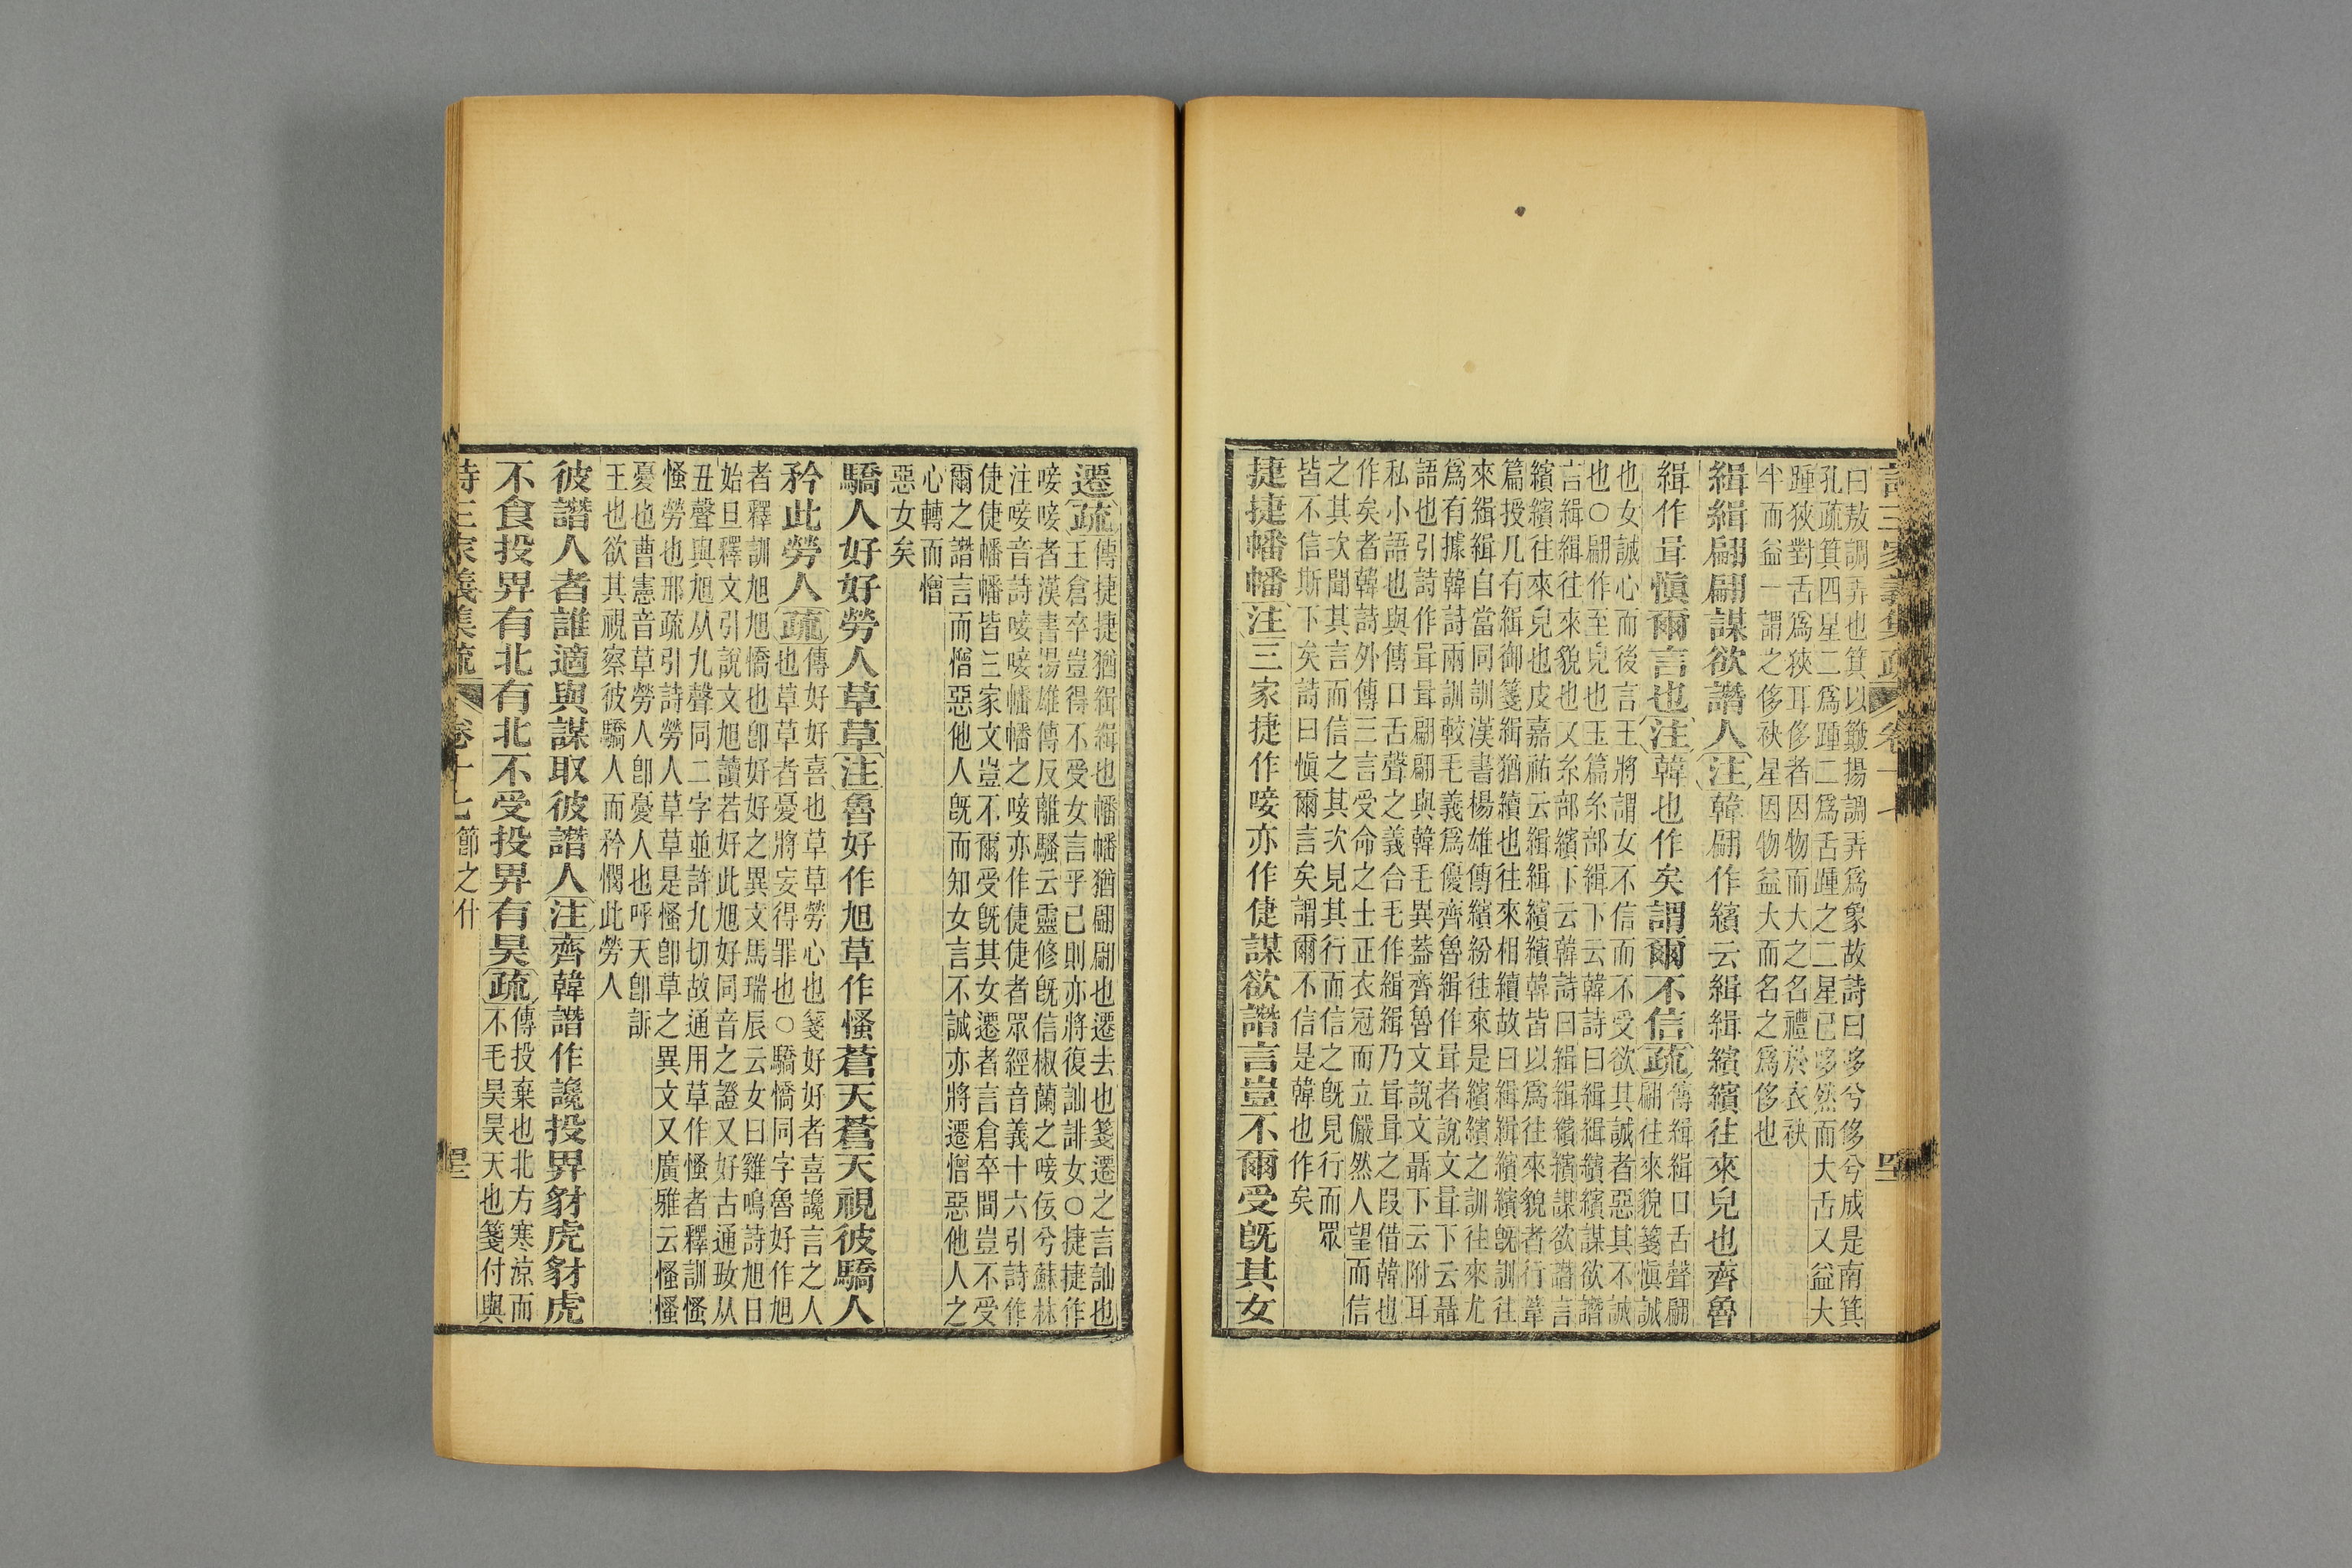 詩三家義集疏 卷十七
曰敖調弄也箕以簸揚調弄爲象故詩曰哆兮侈兮成是南箕
孔疏箕四星二爲踵二爲舌踵之二星已哆然而大舌又益大
踵狹對舌爲狹耳侈者因物而大之名禮於衣袂
半而益一謂之侈袂星因物益大而名之爲侈也
緝緝翩翩謀欲譖人注韓翩作繽云緝緝繽繽往來皃也齊魯
緝作咠愼爾言也注韓也作矣謂爾不信疏
傳緝緝口舌聲翩
翩往來貌箋愼誠
也女誠心而後言王將謂女不信而不受欲其誠者惡其不誠
也○翩作至皃也玉篇糸部緝下云韓詩曰緝緝繽繽謀欲譖
言緝緝往來貌也又糸部繽下云韓詩曰緝緝繽繽謀欲譖言
繽繽往來皃也皮嘉祐云緝緝繽繽韓皆以爲往來貌者行葦
篇授几有緝御箋緝猶續也往來相續故曰緝緝繽繽旣訓往
來緝緝自當同訓漢書楊雄傳繽紛往來是繽繽之訓往來尤
爲有據韓詩兩訓較毛義爲優齊魯緝作咠者說文咠下云聶
語也引詩作咠咠翩翩與韓毛異蓋齊魯文說文聶下云附耳
私小語也與傳口舌聲之義合毛作緝緝乃咠咠之叚借韓也
作矣者韓詩外傳三言受命之士正衣冠而立儼然人望而信
之其次聞其言而信之其次見其行而信之旣見行而眾
皆不信斯下矣詩曰愼爾言矣謂爾不信是韓也作矣
捷捷幡幡注三家捷作唼亦作倢謀欲譖言豈不爾受旣其女
遷疏
傳捷捷猶緝緝也幡幡猶翩翩也遷去也箋遷之言訕也
王倉卒豈得不受女言乎已則亦將復訕誹女○捷捷作
唼唼者漢書揚雄傳反離騷云靈修旣信椒蘭之唼佞兮蘇林
注唼音詩唼唼幡幡之唼亦作倢倢者眾經音義十六引詩作
倢倢幡幡皆三家文豈不爾受旣其女遷者言倉卒間豈不受
爾之譖言而憎惡他人旣而知女言不誠亦將遷憎惡他人之
心轉而憎
惡女矣
驕人好好勞人草草注魯好作旭草作慅蒼天蒼天視彼驕人
矜此勞人疏
傳好好喜也草草勞心也箋好好者喜讒言之人
也草草者憂將妄得罪也○驕憍同字魯好作旭
者釋訓旭旭憍也卽好好之異文馬瑞辰云女曰雞鳴詩旭日
始旦釋文引說文旭讀若好此旭好同音之證又好古通㺵从
丑聲與旭从九聲同二字並許九切故通用草作慅者釋訓慅
慅勞也邢疏引詩勞人草草是慅卽草之異文又廣雅云慅慅
憂也曹憲音草勞人卽憂人也呼天卽訴
王也欲其視察彼驕人而矜憫此勞人
彼譖人者誰適與謀取彼譖人注齊韓譖作讒投畀豺虎豺虎
不食投畀有北有北不受投畀有昊疏
傳投棄也北方寒涼而
不毛昊昊天也箋付與
詩三家義集疏 卷十七 節之什